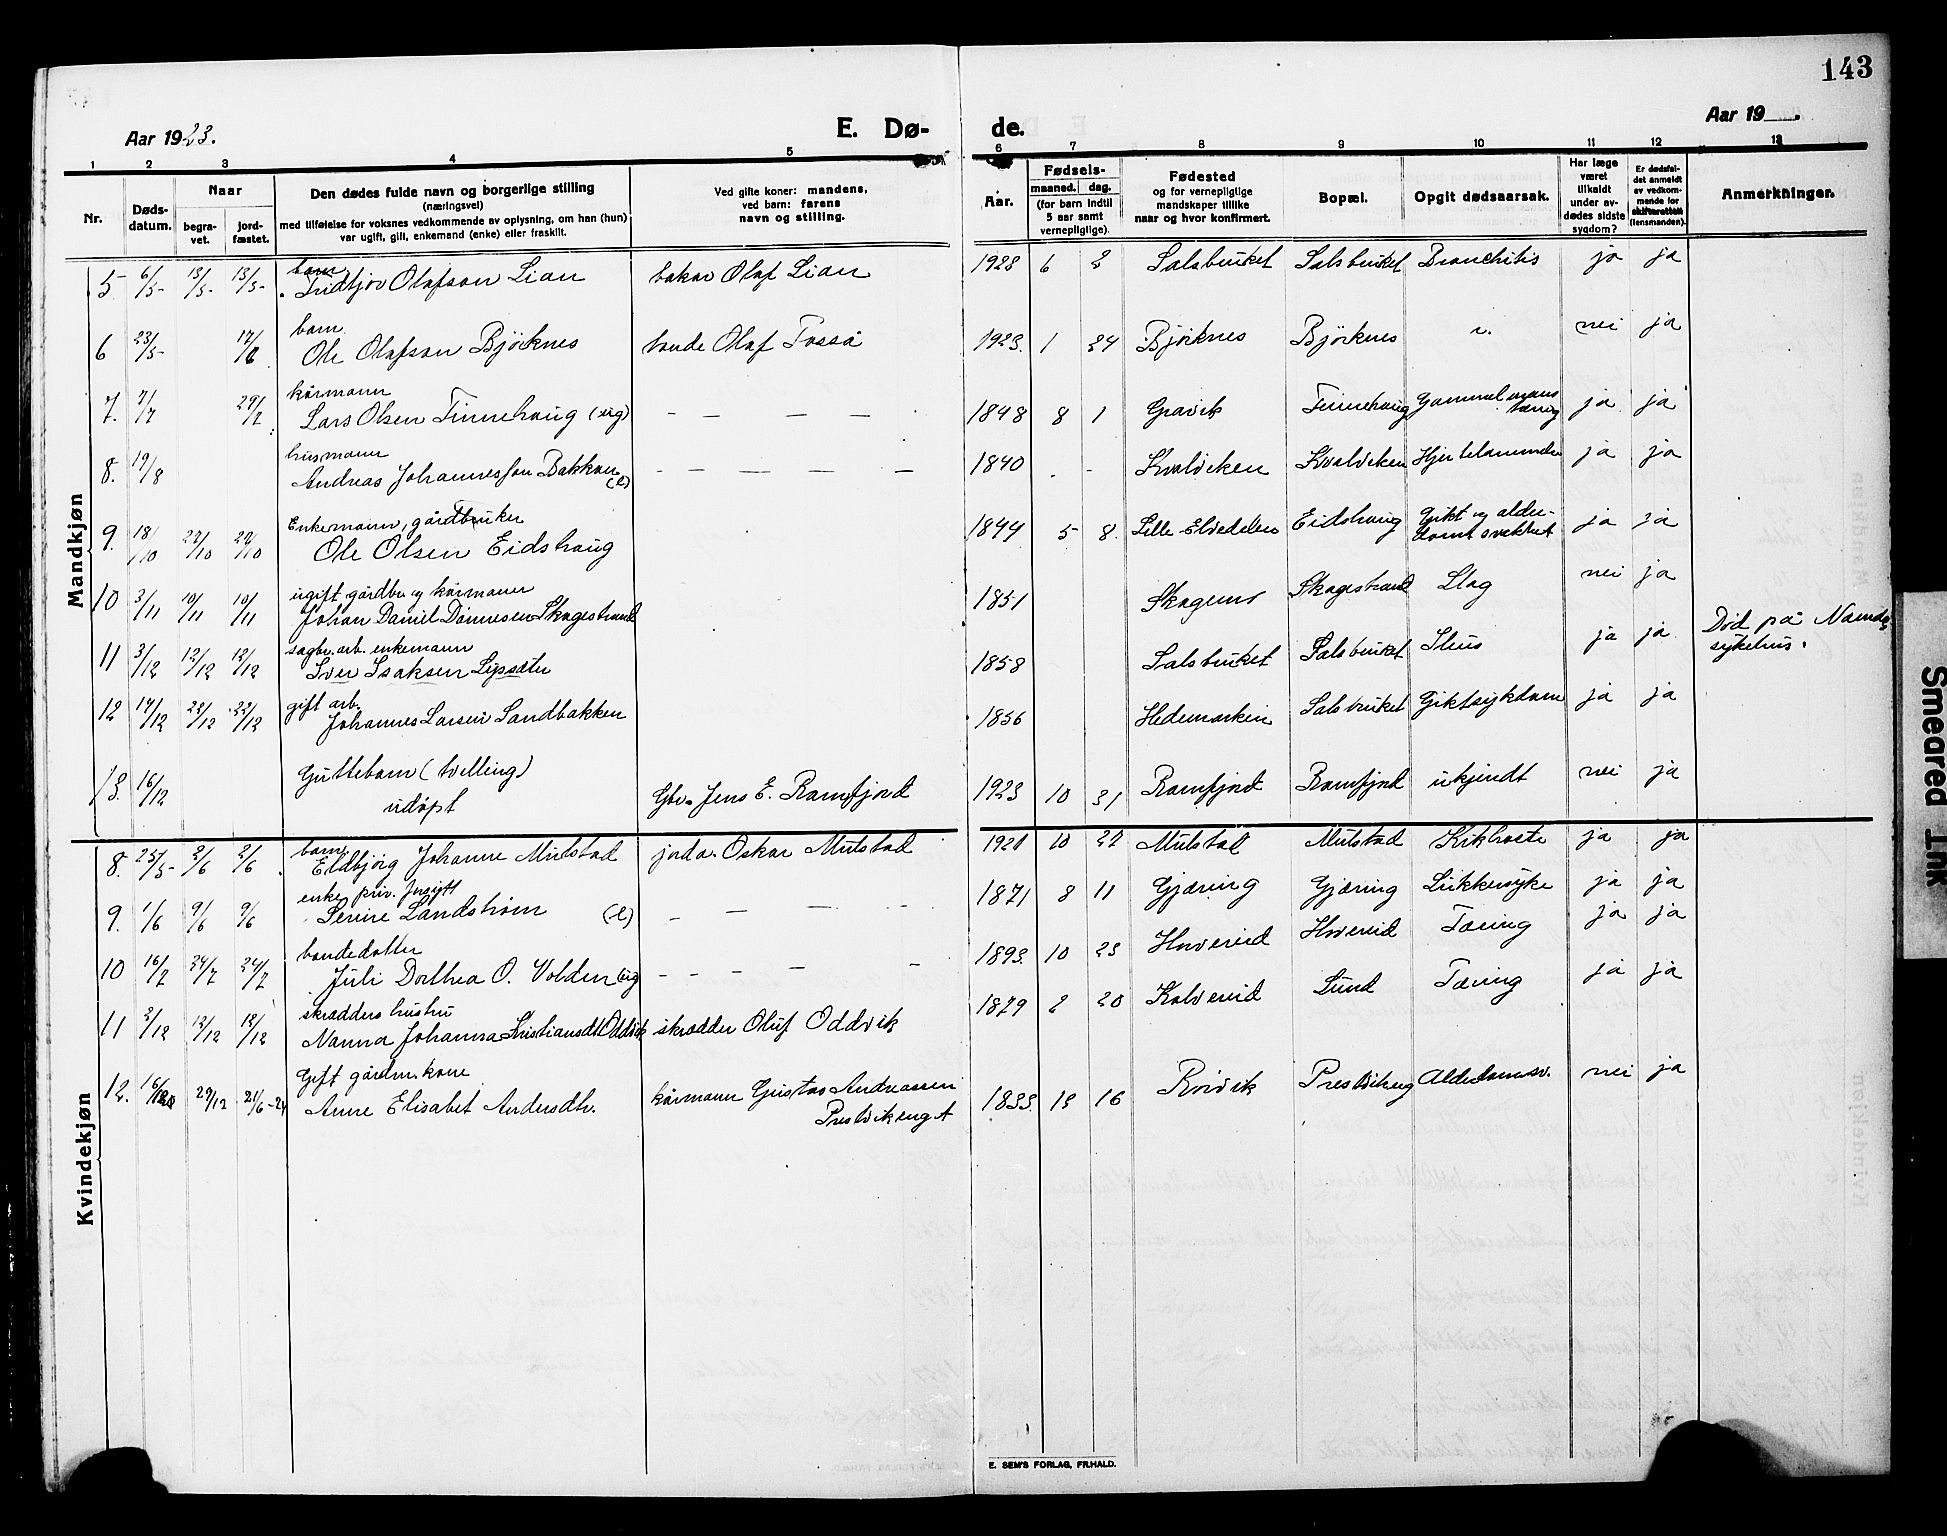 143
Aar 1923.
E. Dø-
de.
Aar 19 .
1 2 3 4 5 6 7 8 9 10 11 12 13
Nr.
Døds-
datum.
Naar
begra-
vet.
jord-
fæstet.
Den dødes fulde navn og borgerlige stilling
(næringsvei)
med tilføielse for voksnes vedkommende av oplysning, om han (hun)
var ugift, gift, enkemand (enke) eller fraskilt.
Ved gifte koner: mandens,
ved barn: farens
navn og stilling.
Aar.
Fødsels-
maaned. dag.
(for barn indtil
5 aar samt
vernepligtige).
Fødested
og for vernepligtige
mandskaper tillike
naar og hvor konfirmert.
Bopæl.
Opgit dødsaarsak.
Har læge
været
tilkaldt
under av-
dødes sidste
sygdom?
Er dødsfal-
det anmeldt
av vedkom-
mende for
skifteretten
(lensmanden).
Anmerkninger.
Mandkjøn
barn
5 6/5 13/5 13/5 Fridtjov Olafson Lian bakar Olaf Lian 1923 6 2 Salsbruket Salsbruket Bronchitis ja ja
barn
6 23/5 17/6 Ole Olafson Bjørknes bonde Olaf Fosså 1923. 1 24 Bjørknes Bjørknes u. nei ja
kårmann
7. 7/7 29/7 Lars Olsen Finnehaug (ug) — — — — 1848 8 1 Gravik Finnehaug Gammalmans tæring ja ja
husmann
8. 19/8 Andreas Johannesson Bakkan (e) — — — — — 1840 - - Kvalviken Kvalviken ja ja
Enkemann, gårdbruker
9. 18/10 22/10 22/10 Ole Olsen Eidshaug 1844 5 8. Lille-Elvedalen Eidshaug Gikt og alder-
domssvekket ja ja
ugift gårdbr. og kårmann
10 3/11 10/11 10/11 Johan Daniel Dønnesen Skagestrand 1851 Skagestrand Slag nei ja
sagbr. arb. enkemann
11 3/12 12/12 12/12 Iver Isaksen 1858 Salsbruket Salsbruket ja ja Død på Namdal
sykehus.
gift arb.
12 14/12 22/12 22/12 Johannes Larsen Sandbakken 1856 Hedemarken Salsbruket Giktsykdom ja ja
Guttebarn (tvilling)
13. 16/12 udøpt Gbr. Jens E. Ramfjord 1923 10 31 Ramfjord Ramfjord ukjendt nei ja
Kvindekjøn
barn
8. 25/5 2/6 2/6 Eldbjørg Johanne Mulstad jorda. Oskar Mulstad 1921 10 22 Mulstad Mulstad Kikhoste ja ja
enke priv. forsytt
9. 1/6 9/6 9/6 Serine Landstrøm (e) — — — 1871 8 11 Gjæring Gjæring Sukkersyke ja ja
bondedotter
10 16/7 24/7 24/7 Juli Dorthea O. Volden (ug — — — — 1893. 10 23 Høvereid Høvereid Tæring ja ja
skredders hustru
11 2/12 12/12 12/12 Nanna Johanna Kristiansdt. Oddvik skredder Oluf Oddvik 1879 2 20 Kolvereid Lund Tæring ja ja
Gift gårdm. kone
12. 16/12 29/12 21/6-24 Anne Elisabet Andersdtr. kårmann Gustav Andreassen
Prestvikenget 1833. 13 16 Rørvik Prestvikeng Alderdomssv. nei ja
E. SEM'S FORLAG, FR.HALD.
Smeared Ink